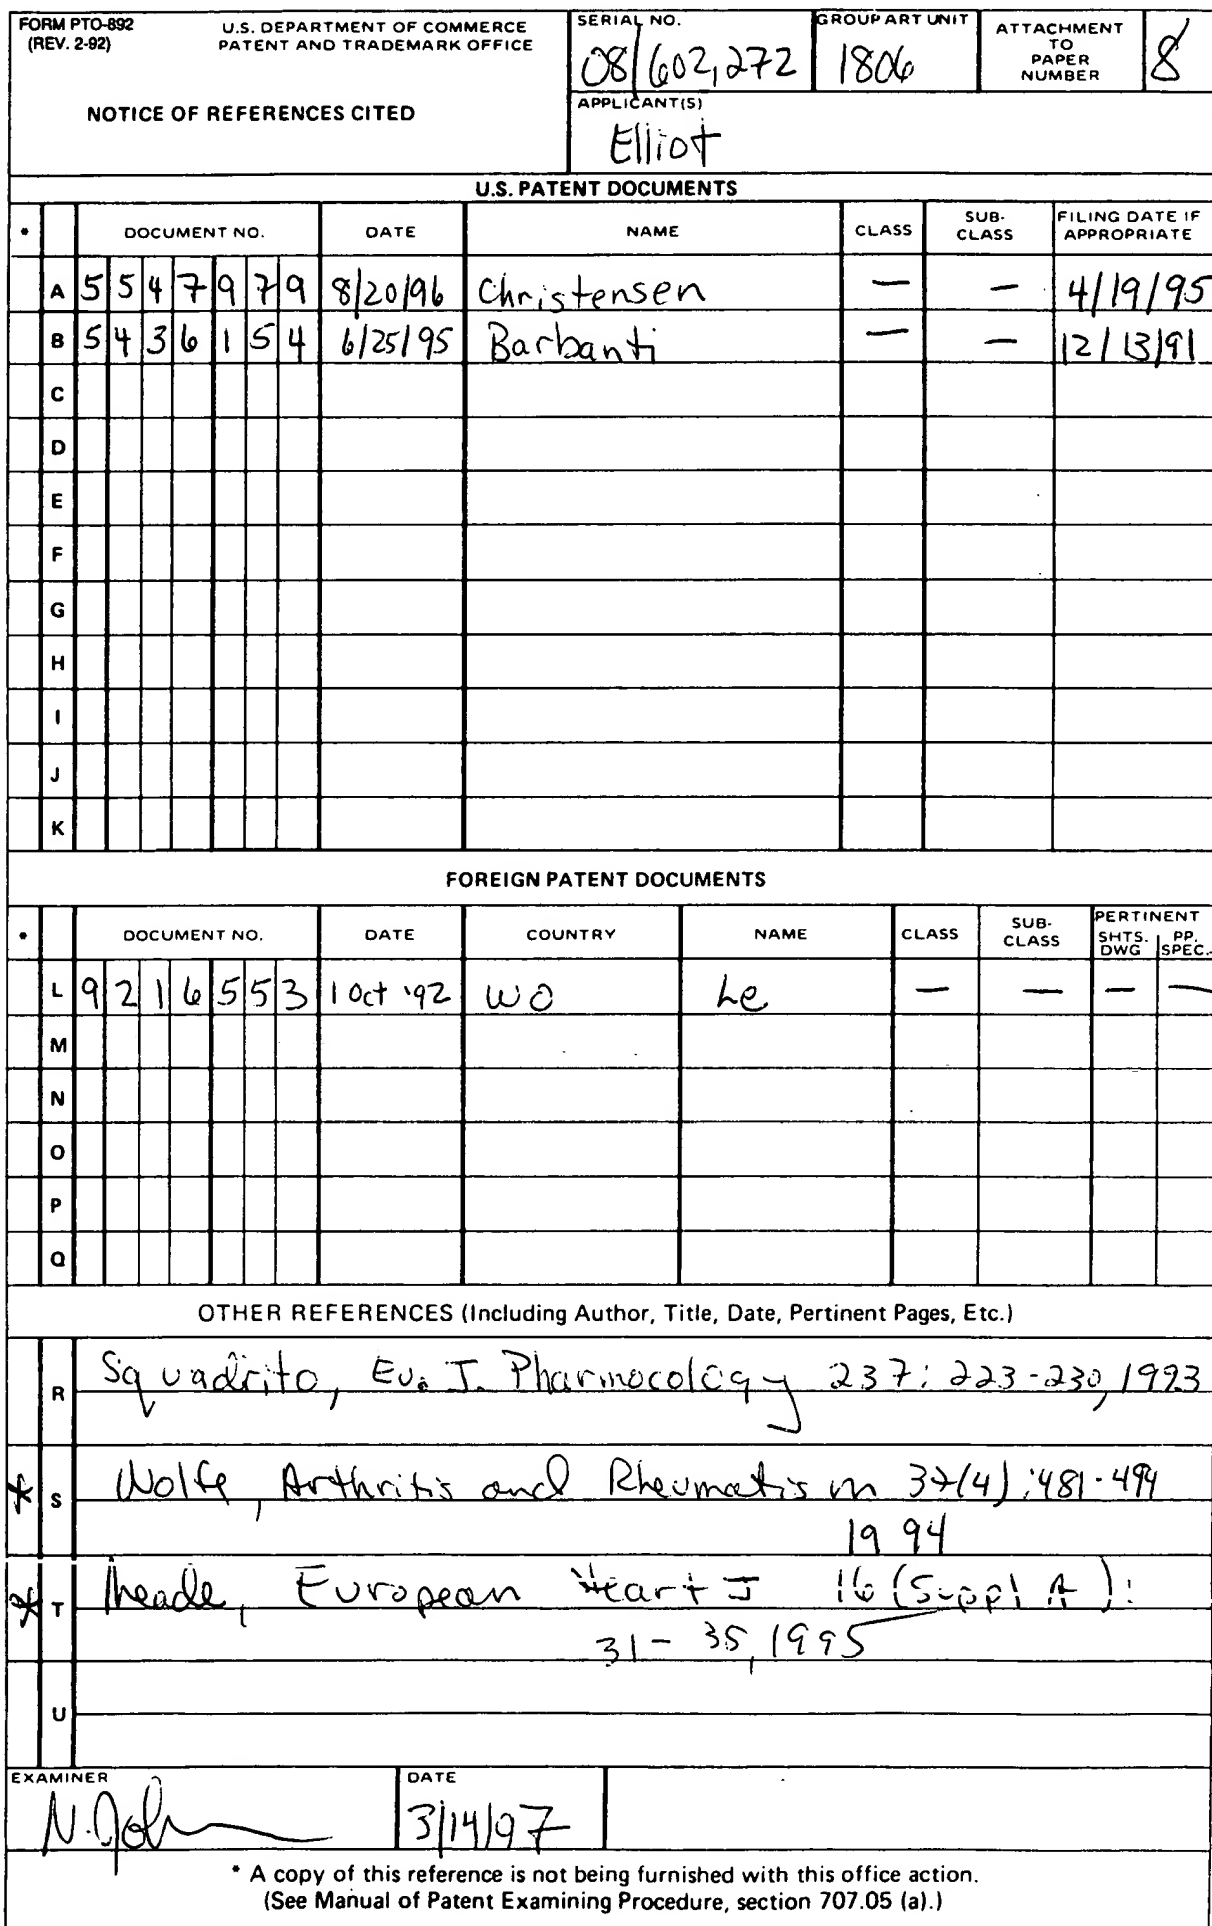 FORM PTO-892
(REV. 2-92)
U.S. DEPARTMENT OF COMMERCE
PATENT AND TRADEMARK OFFICE
NOTICE OF REFERENCES CITED
SERIAL NO.
08/602,272
GROUP ART UNIT
1806
ATTACHMENT
TO
PAPER
NUMBER
8
APPLICANT(S)
Elliot
U.S. PATENT DOCUMENTS
* DOCUMENT NO. DATE NAME CLASS SUB-CLASS FILING DATE IF APPROPRIATE
A 5547979 8/20/96 Christensen — — 4/19/95
B 5436154 6/25/95 Barbanti — — 12/13/91
C
D
E
F
G
H
I
J
K
FOREIGN PATENT DOCUMENTS
* DOCUMENT NO. DATE COUNTRY NAME CLASS SUB-CLASS PERTINENT SHTS. DWG PP. SPEC.
L 9216553 1 Oct '92 WO Le — — — —
M
N
O
P
Q
OTHER REFERENCES (Including Author, Title, Date, Pertinent Pages, Etc.)
R Squadrito, Eu. J. Pharmocology 237: 223-230, 1993
* S Wolfe, Arthritis and Rheumatism 37(4):481-499
1994
* T Meade, European Heart J 16 (Suppl A):
31-35, 1995
U
EXAMINER
N. Joh
DATE
3/14/97
* A copy of this reference is not being furnished with this office action.
(See Manual of Patent Examining Procedure, section 707.05 (a).)